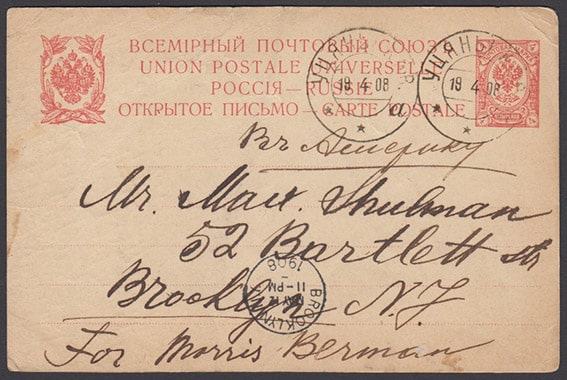 ВСЕМІРНЫЙ ПОЧТОВЫЙ СОЮЗ
UNION POSTALE UNIVERSELLE
РОССІЯ — RUSSIE
ОТКРЫТОЕ ПИСЬМО — CARTE POSTALE
УЦЯНЫ
19 4 08
а
УЦЯНЫ
19 4 08
Въ Америку
Mr. Max. Shulman
52 Bartlett str
Brooklyn N.J
For Morris Berman
BROOKLYN
11-PM
1908